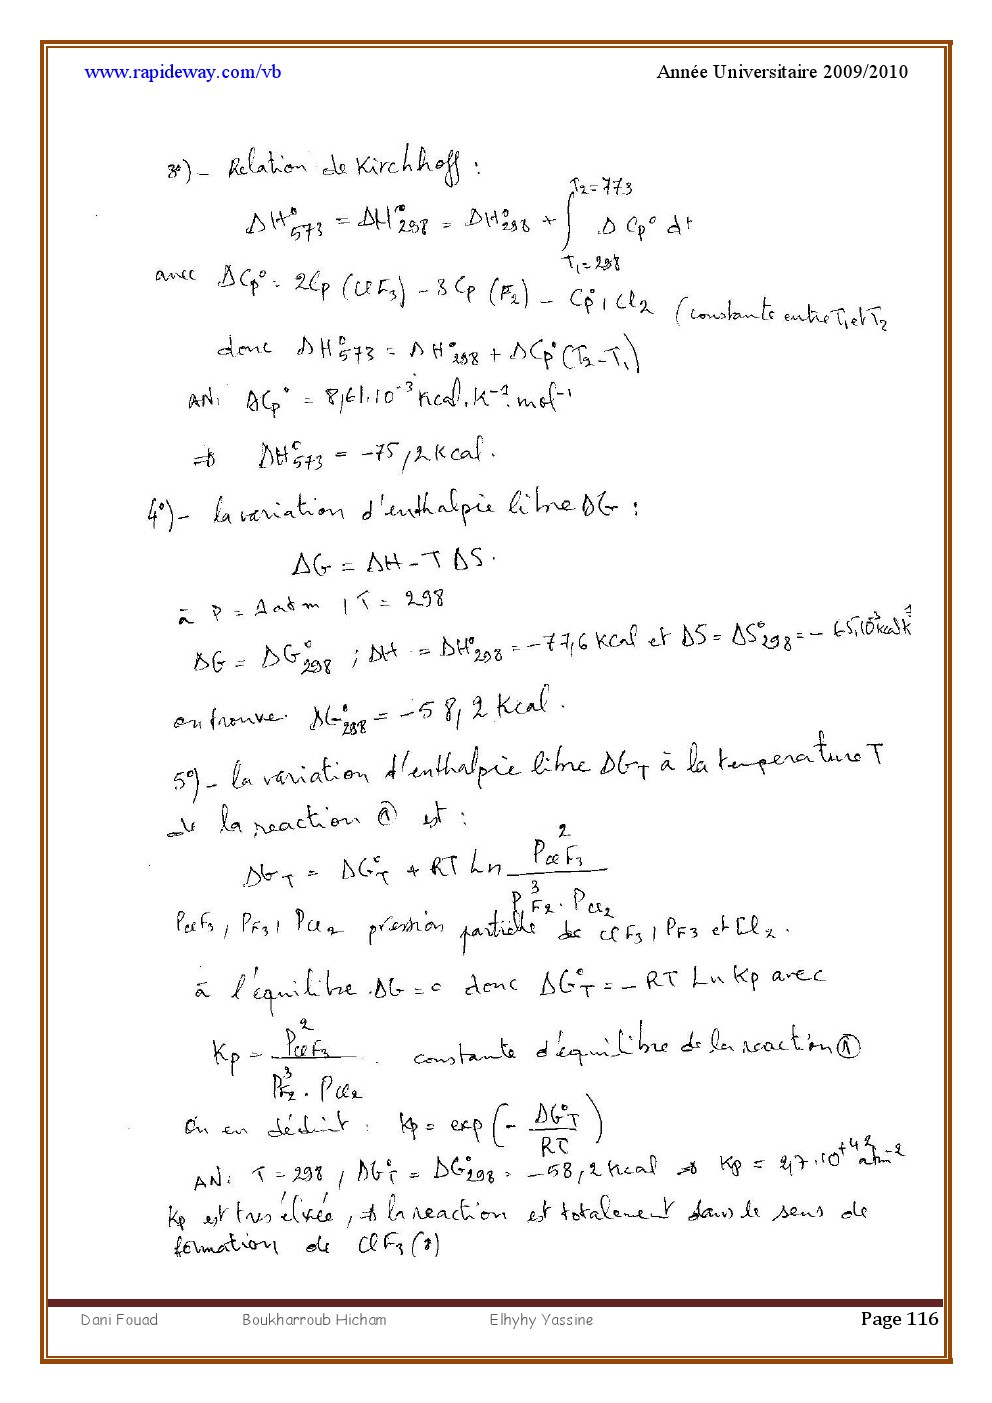 www.rapideway.com/vb Année Universitaire 2009/2010
3°) - Relation de Kirchhoff :
ΔH°573 = ΔH°298 = ΔH°298 + ∫ T1=298 T2=773 Δ Cp° dt
avec ΔCp° = 2Cp (ClF3) - 3Cp (F2) - Cp°, Cl2 (constante entre T1 et T2
donc ΔH°573 = ΔH°298 + ΔCp°(T2-T1)
AN: ΔCp° = 8,61.10^-3 Kcal.K^-1.mol^-1
⇒ ΔH°573 = -75,2 Kcal.
4°) - la variation d'enthalpie libre ΔG :
ΔG = ΔH - T ΔS.
à P = 1atm , T = 298
ΔG = ΔG°298 ; ΔH = ΔH°298 = -77,6 Kcal et ΔS = ΔS°298 = - 65,10^-3 Kcal K^-1
on trouve. ΔG°298 = -58,2 Kcal.
5°) - la variation d'enthalpie libre ΔGT à la temperature T
de la reaction ① est :
ΔGT = ΔG°T + RT Ln P²ClF3 / P³F2 . PCl2
PClF3, PF3, PCl2 pression partielle de ClF3, PF3 et Cl2.
à l'équilibre ΔG=0 donc ΔG°T = - RT Ln Kp avec
Kp = P²ClF3 / P³F2 . PCl2 . constante d'équilibre de la reaction ①
On en déduit : Kp = exp(- ΔG°T / RT)
AN: T = 298, ΔG°T = ΔG°298 = -58,2 Kcal ⇒ Kp = 2,7.10^+42 atm^-2
Kp est tres élévée, ⇒ la reaction est totalement dans le sens de
formation de ClF3 (g)
Dani Fouad Boukharroub Hicham Elhyhy Yassine Page 116